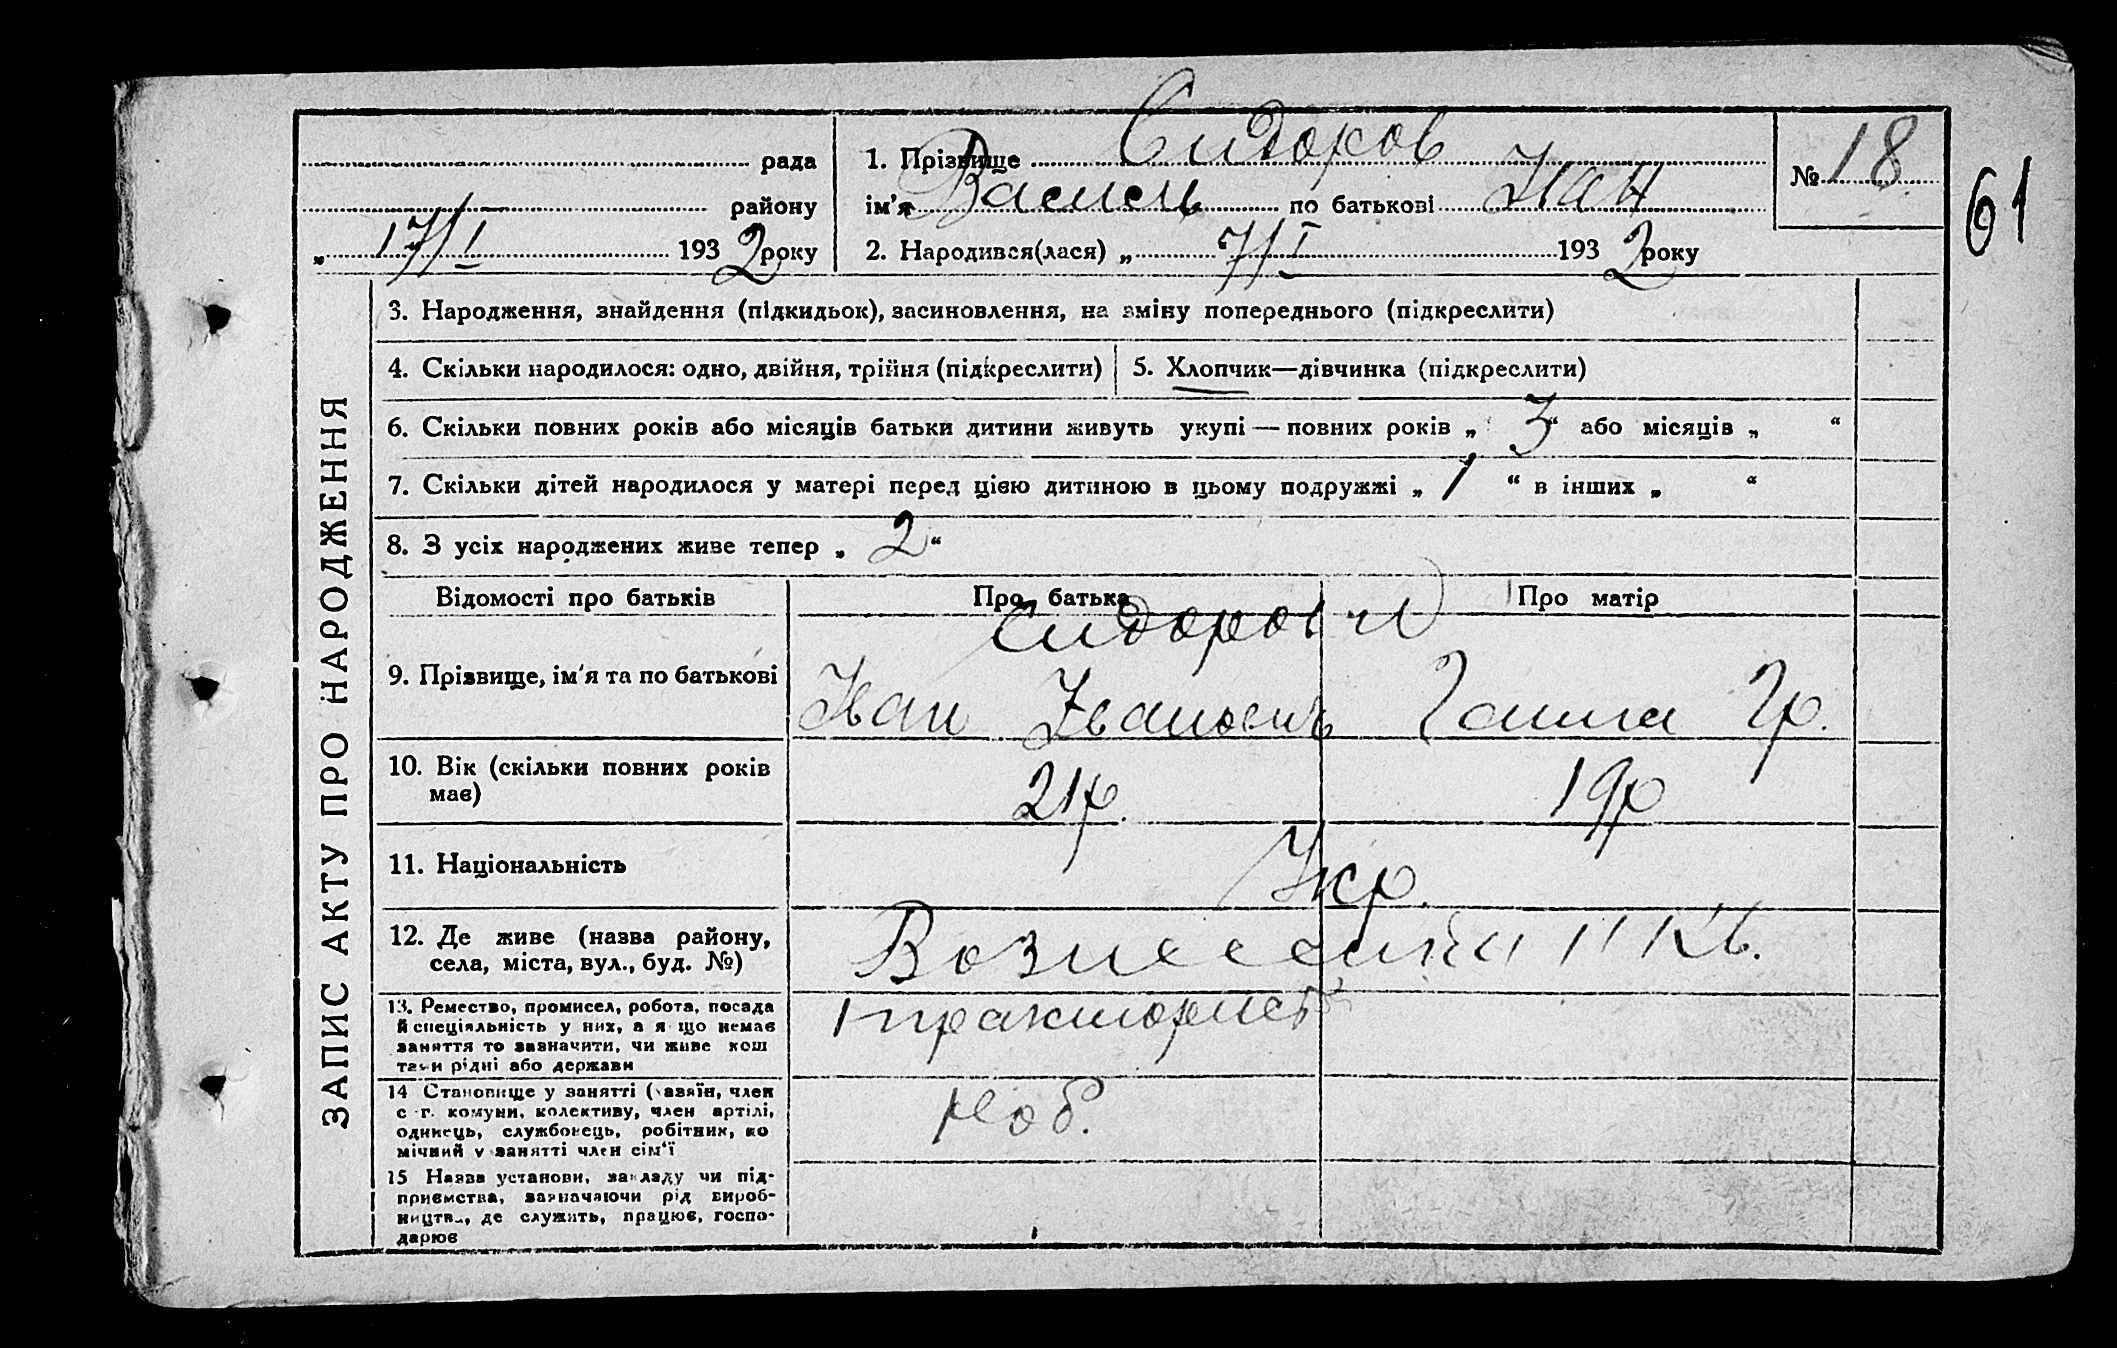 ЗАПИС АКТУ ПРО НАРОДЖЕННЯ
рада
району
„ 17/I 1932 року
1. Прізвище Сидоров
ім'я Василь по батькові Иван
2. Народився(лася) „ 7/I 1932 року
№ 18
61
3. Народження, знайдення (підкидьок), засиновлення, на зміну попереднього (підкреслити)
4. Скільки народилося: одно, двійня, трійня (підкреслити)
5. Хлопчик—дівчинка (підкреслити)
6. Скільки повних років або місяців батьки дитини живуть укупі — повних років „ 3 “ або місяців „ “
7. Скільки дітей народилося у матері перед цією дитиною в цьому подружжі „ 1 “ в інших „ “
8. З усіх народжених живе тепер „ 2 “
Відомості про батьків
Про батька
Про матір
9. Прізвище, ім'я та по батькові
Сидорови
Иван Иванович
Ганна Гр.
10. Вік (скільки повних років має)
21 р.
19 р
11. Національність
Укр.
12. Де живе (назва району, села, міста, вул., буд. №)
13. Ремество, промисел, робота, посада
й спеціяльність у них, а я що немає
заняття то зазначити, чи живе кош
тами рідні або держави
тракторист
14 Становище у занятті (хазяїн, член
с-г. комуни, колективу, член артілі,
одинець, службовець, робітник, по
мічний у занятті член сім'ї
Роб.
15 Назва установи, закладу чи під-
приємства, зазначаючи рід вироб-
ництва, де служить, працює, госпо-
дарює